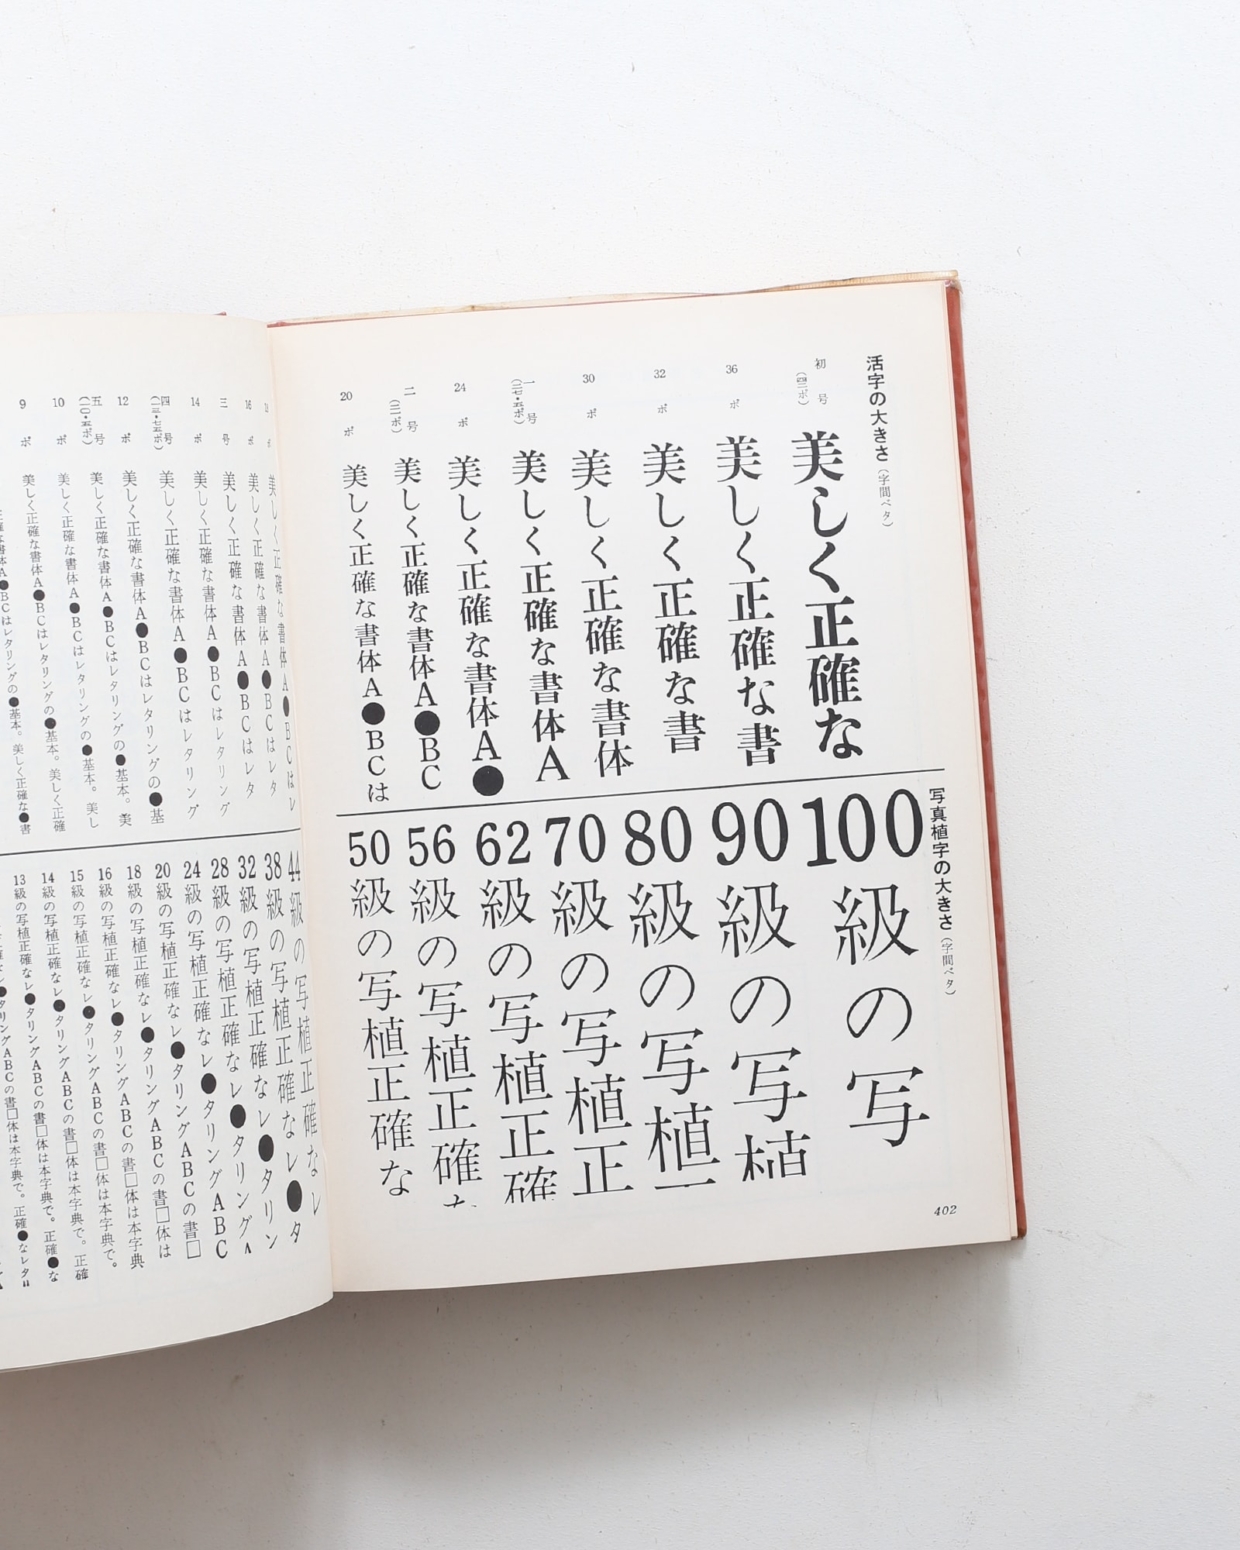 活字の大きさ（字間ベタ）
初号（四二ポ）
美しく正確な
36ポ
美しく正確な書
32ポ
美しく正確な書
30ポ
美しく正確な書体
一号（二七・五ポ）
美しく正確な書体A
24ポ
美しく正確な書体A●
二号（二一ポ）
美しく正確な書体A●BC
20ポ
美しく正確な書体A●BCは
美しく正確な書体A●BCはレ
16ポ
美しく正確な書体A●BCはレタ
三号
美しく正確な書体A●BCはレタリング
14ポ
美しく正確な書体A●BCはレタリング
四号（一三・七五ポ）
美しく正確な書体A●BCはレタリングの●基
12ポ
美しく正確な書体A●BCはレタリングの●基本。美
五号（一〇・五ポ）
美しく正確な書体A●BCはレタリングの●基本。美し
10ポ
美しく正確な書体A●BCはレタリングの●基本。美しく正確
9ポ
美しく正確な書体A●BCはレタリングの●基本。美しく正確な●書
写真植字の大きさ（字間ベタ）
100級の写
90級の写植
80級の写植
70級の写植正
62級の写植正確
56級の写植正確
50級の写植正確な
44級の写植正確なレ
38級の写植正確なレ●タ
32級の写植正確なレ●タリン
28級の写植正確なレ●タリングA
24級の写植正確なレ●タリングABC
20級の写植正確なレ●タリングABCの書□
18級の写植正確なレ●タリングABCの書□体は
16級の写植正確なレ●タリングABCの書□体は本字典
15級の写植正確なレ●タリングABCの書□体は本字典で。
14級の写植正確なレ●タリングABCの書□体は本字典で。正確
13級の写植正確なレ●タリングABCの書□体は本字典で。正確●な
402